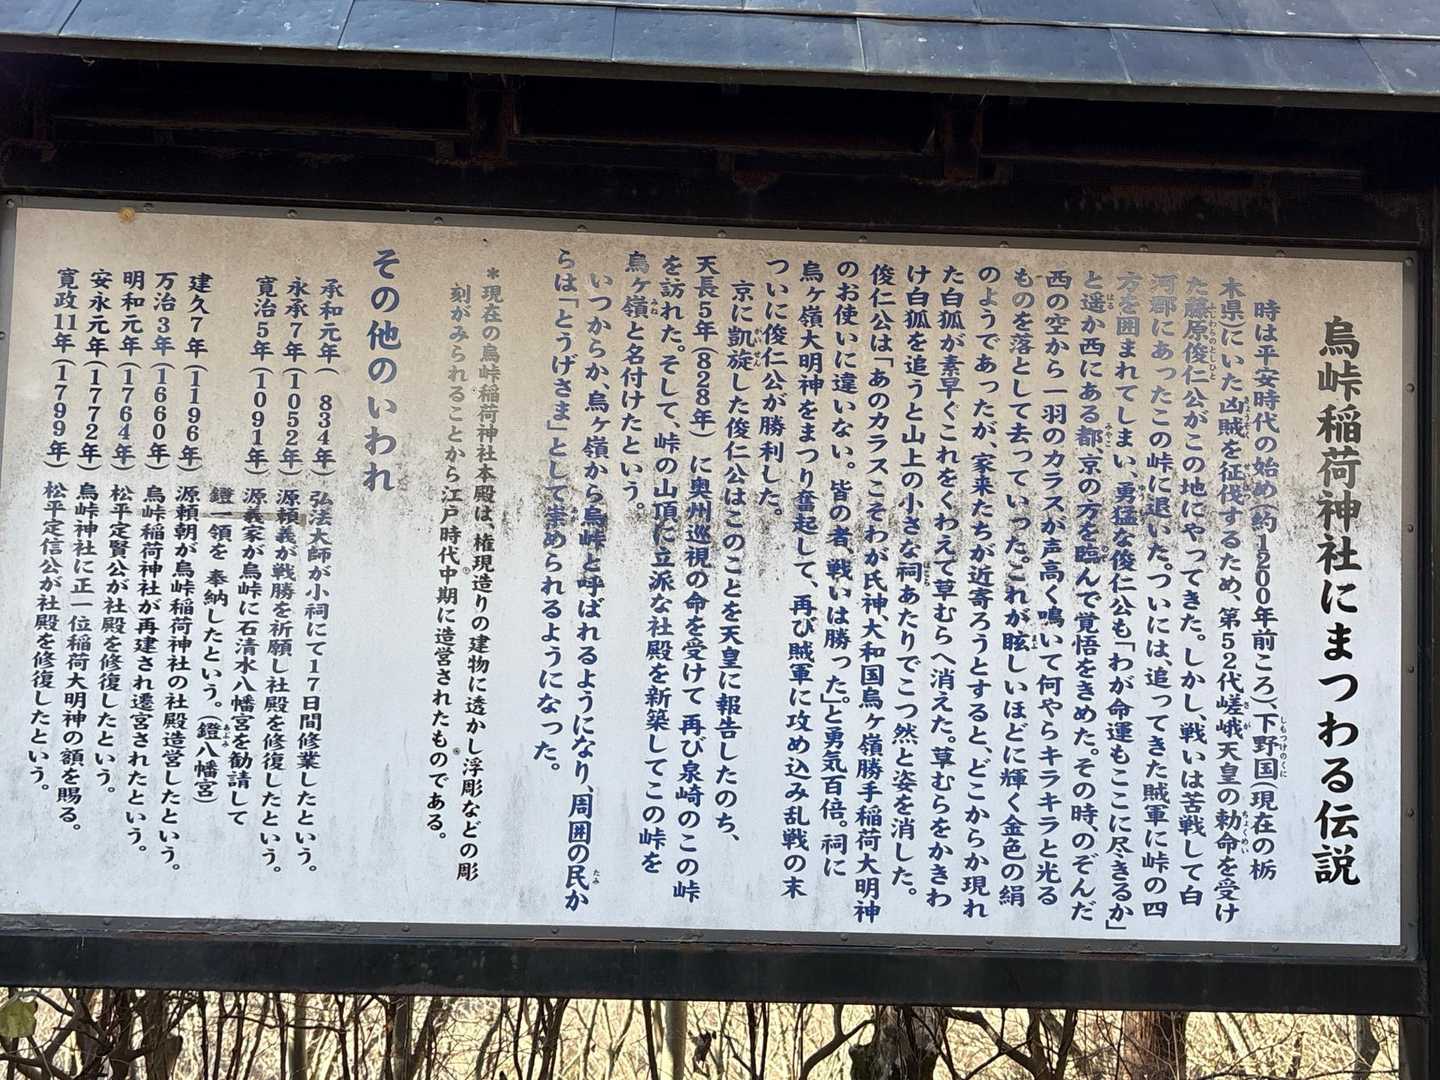 烏峠稲荷神社にまつわる伝説
時は平安時代の始め(約1200年前ころ)、下野国(現在の栃
木県)にいた凶賊を征伐するため、第52代嵯峨天皇の勅命を受け
た藤原俊仁公がこの地にやってきた。しかし、戦いは苦戦して白
河郷にあったこの峠に退いた。ついには、追ってきた賊軍に峠の四
方を囲まれてしまい、勇猛な俊仁公も「わが命運もここに尽きるか」
と遥か西にある都、京の方を臨んで覚悟をきめた。その時、のぞんだ
西の空から一羽のカラスが声高く鳴いて何やらキラキラと光る
ものを落として去っていった。これが眩しいほどに輝く金色の絹
のようであったが、家来たちが近寄ろうとすると、どこからか現れ
た白狐が素早ぐこれをくわえて草むらへ消えた。草むらをかきわ
け白狐を追うと山上の小さな祠あたりでこつ然と姿を消した。
俊仁公は「あのカラスこそわが氏神、大和国烏ヶ嶺勝手稲荷大明神
のお使いに違いない。皆の者、戦いは勝った。」と勇気百倍。祠に
烏ヶ嶺大明神をまつり奮起して、再び賊軍に攻め込み乱戦の末
ついに俊仁公が勝利した。
京に凱旋した俊仁公はこのことを天皇に報告したのち、
天長5年(828年)に奥州巡視の命を受けて再び泉崎のこの峠
を訪れた。そして、峠の山頂に立派な社殿を新築してこの峠を
烏ヶ嶺と名付けたという。
いつからか、烏ヶ嶺から烏峠と呼ばれるようになり、周囲の民か
らは「とうげさま」として崇められるようになった。
*現在の烏峠稲荷神社本殿は、権現造りの建物に透かし浮彫などの彫
刻がみられることから江戸時代中期に造営されたものである。
その他のいわれ
承和元年(834年)弘法大師が小祠にて17日間修業したという。
永承7年(1052年)源頼義が戦勝を祈願し社殿を修復したという。
寛治5年(1091年)源義家が烏峠に石清水八幡宮を勧請して
鐙一領を奉納したという。(鐙八幡宮)
建久7年(1196年)源頼朝が烏峠稲荷神社の社殿造営したという。
万治3年(1660年)烏峠稲荷神社が再建され遷宮されたという。
明和元年(1764年)松平定賢公が社殿を修復したという。
安永元年(1772年)烏峠神社に正一位稲荷大明神の額を賜る。
寛政11年(1799年)松平定信公が社殿を修復したという。